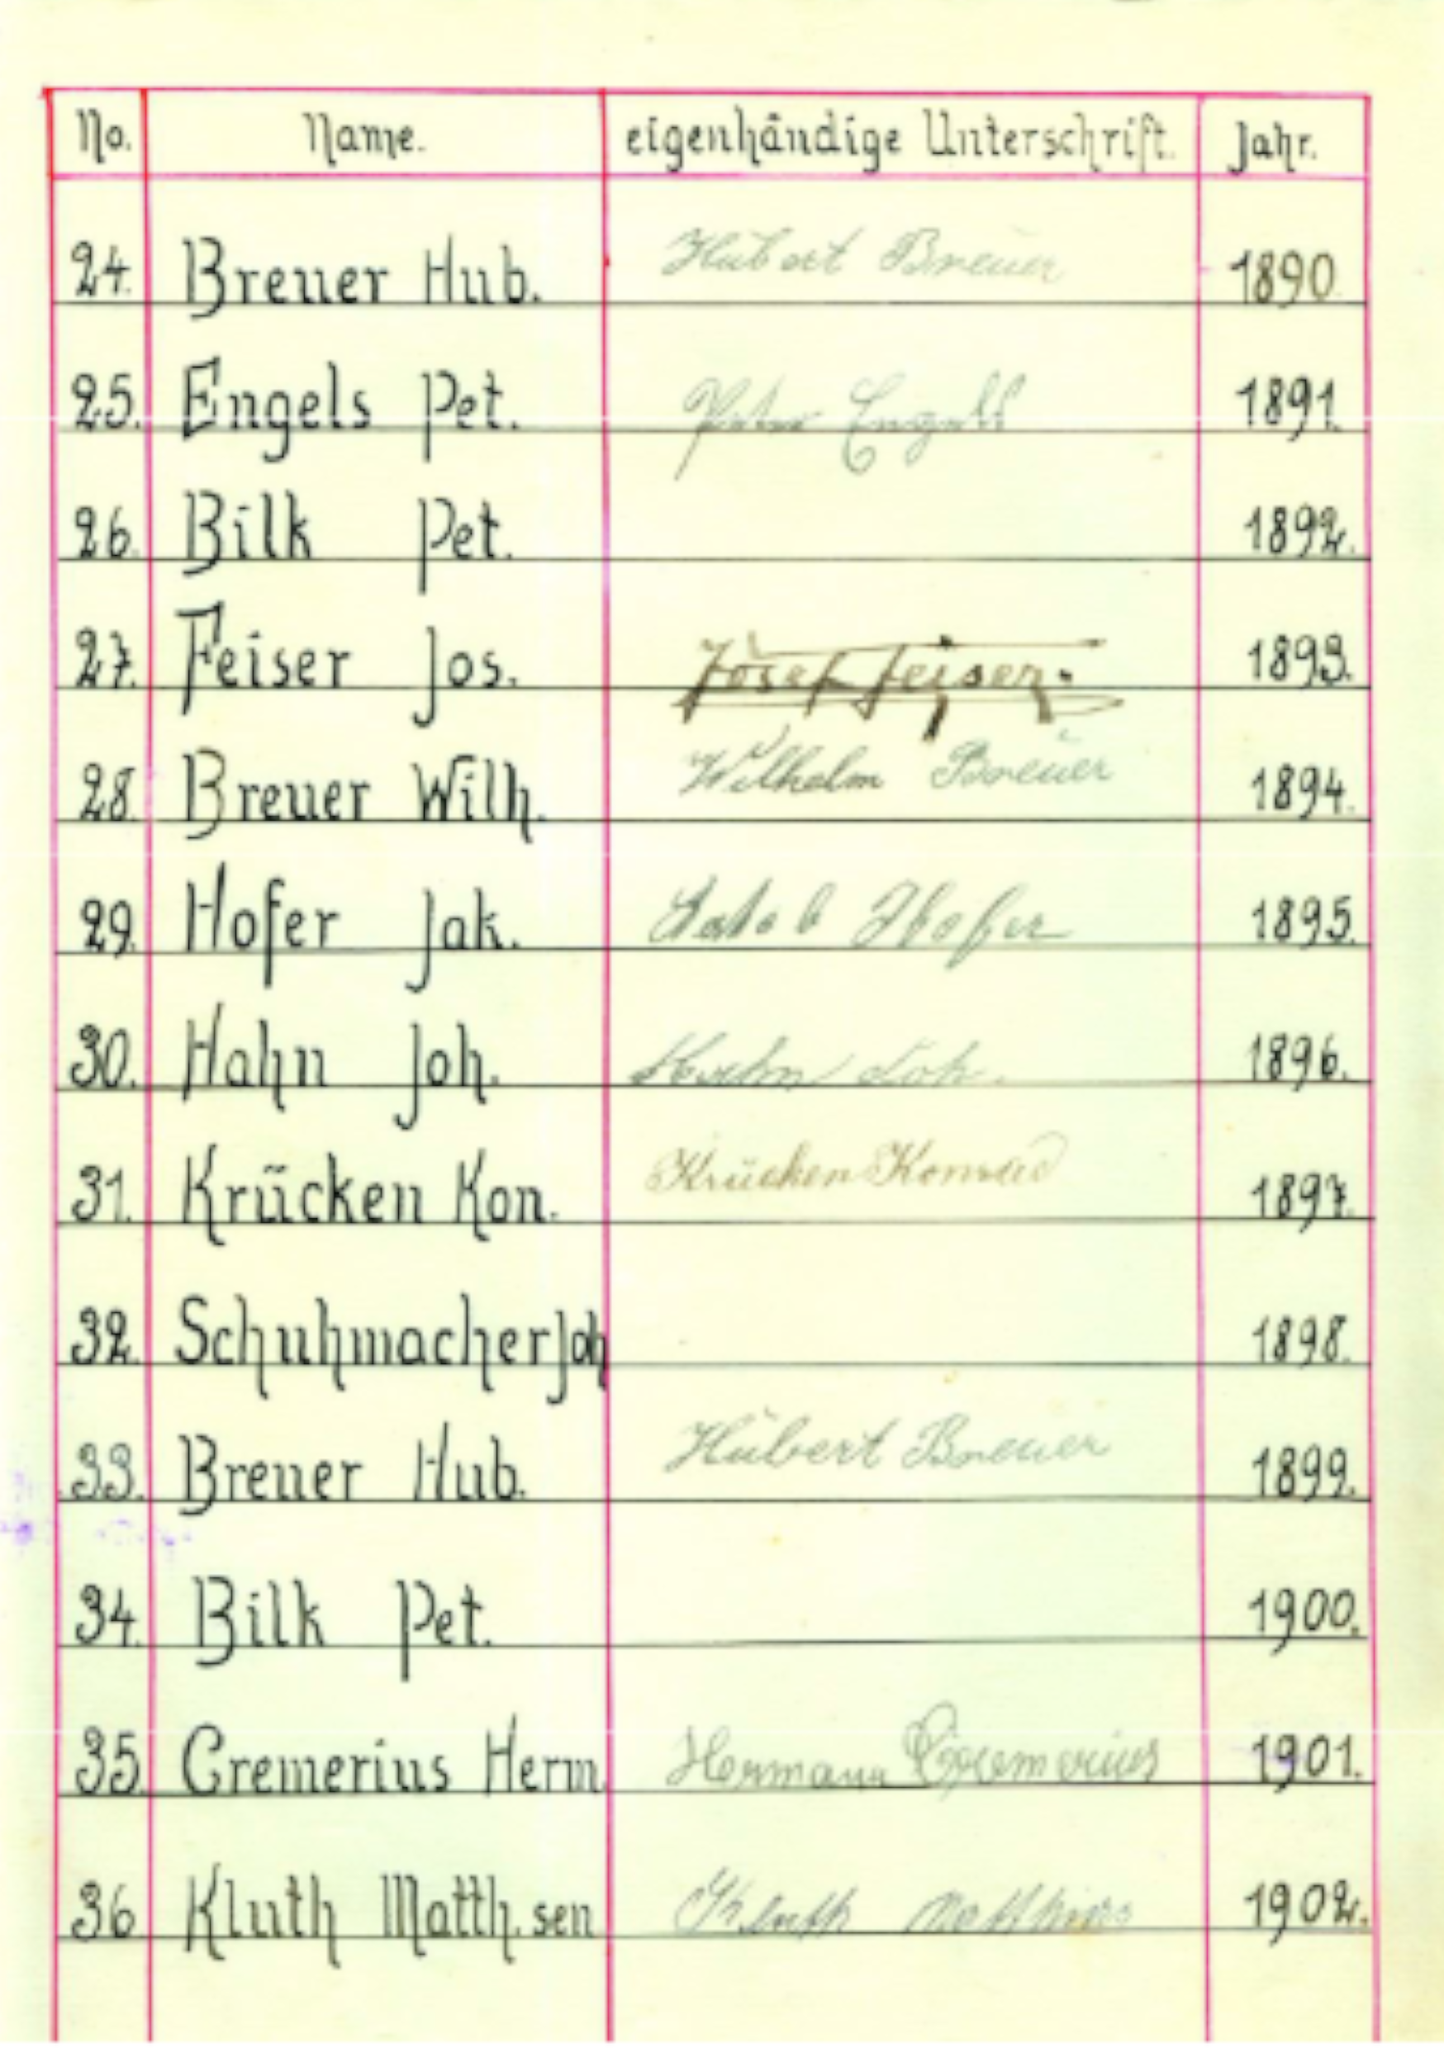 No. Name. eigenhändige Unterschrift. Jahr.
24. Breuer Hub. Hubert Breuer 1890
25. Engels Pet. Peter Engels 1891.
26. Bilk Pet. 1892.
27. Feiser Jos. Josef Feiser. 1893.
28. Breuer Wilh. Wilhelm Breuer 1894.
29. Hofer Jak. Jakob Hofer 1895.
30. Hahn Joh. Hahn Joh. 1896.
31. Krücken Kon. Krücken Konrad 1897.
32. Schuhmacher Joh 1898.
33. Breuer Hub. Hubert Breuer 1899.
34. Bilk Pet. 1900.
35. Cremerius Herm. Hermann Cremerius 1901.
36 Kluth Matth. sen Kluth Mathias 1902.